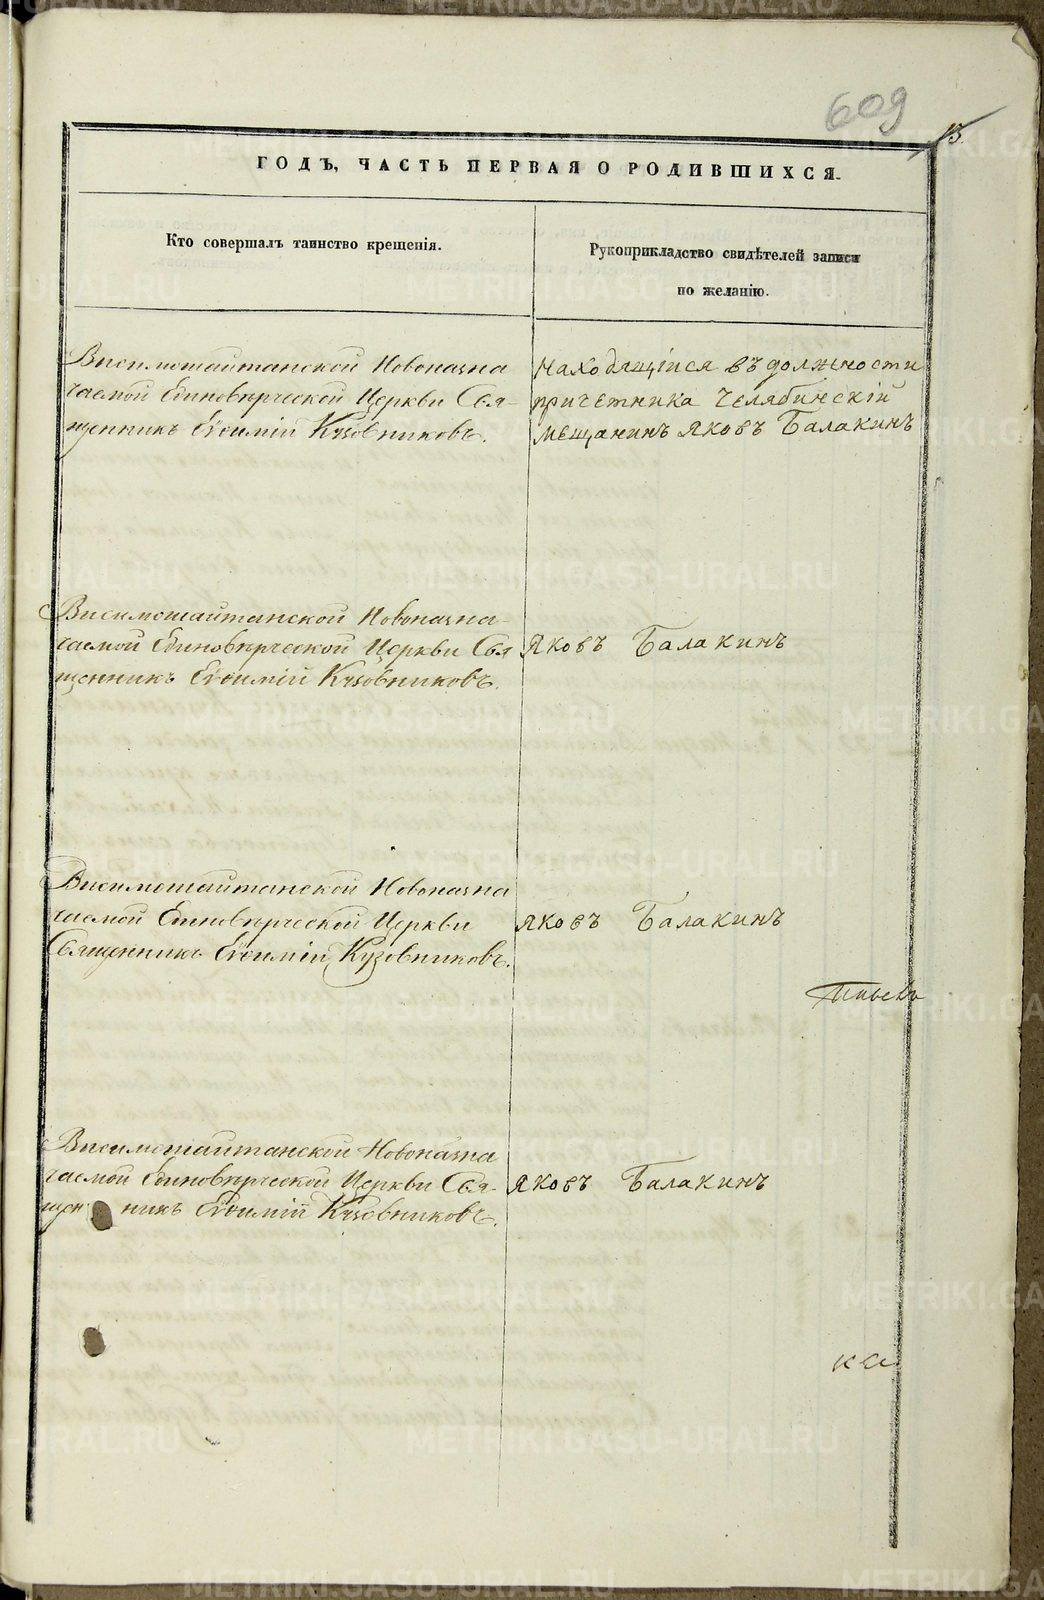 609
13.
ГОДЪ, ЧАСТЬ ПЕРВАЯ О РОДИВШИХСЯ.
Кто совершалъ таинство крещенія.
Рукоприкладство свидѣтелей записи
по желанію.
Висимошайтанской Новоназна
чаемой Единовѣрческой Церкви Свя-
щенникъ Евѳимій Кузовниковъ.
Находящійся въ должности
причетника Челябинскій
мещанинъ Яковъ Балакинъ
Висимошайтанской Новоназна-
чаемой Единовѣрческой Церкви Свя
щенникъ Евѳимій Кузовниковъ.
Яковъ Балакинъ
Висимошайтанской Новоназна
чаемой Единовѣрческой Церкви
Священникъ Евѳимій Кузовниковъ.
Яковъ Балакинъ
Висимошайтанской Новоназна
чаемой Единовѣрческой Церкви Свя-
щенникъ Евѳимій Кузовниковъ.
Яковъ Балакинъ
METRIKI.GASO-URAL.RU